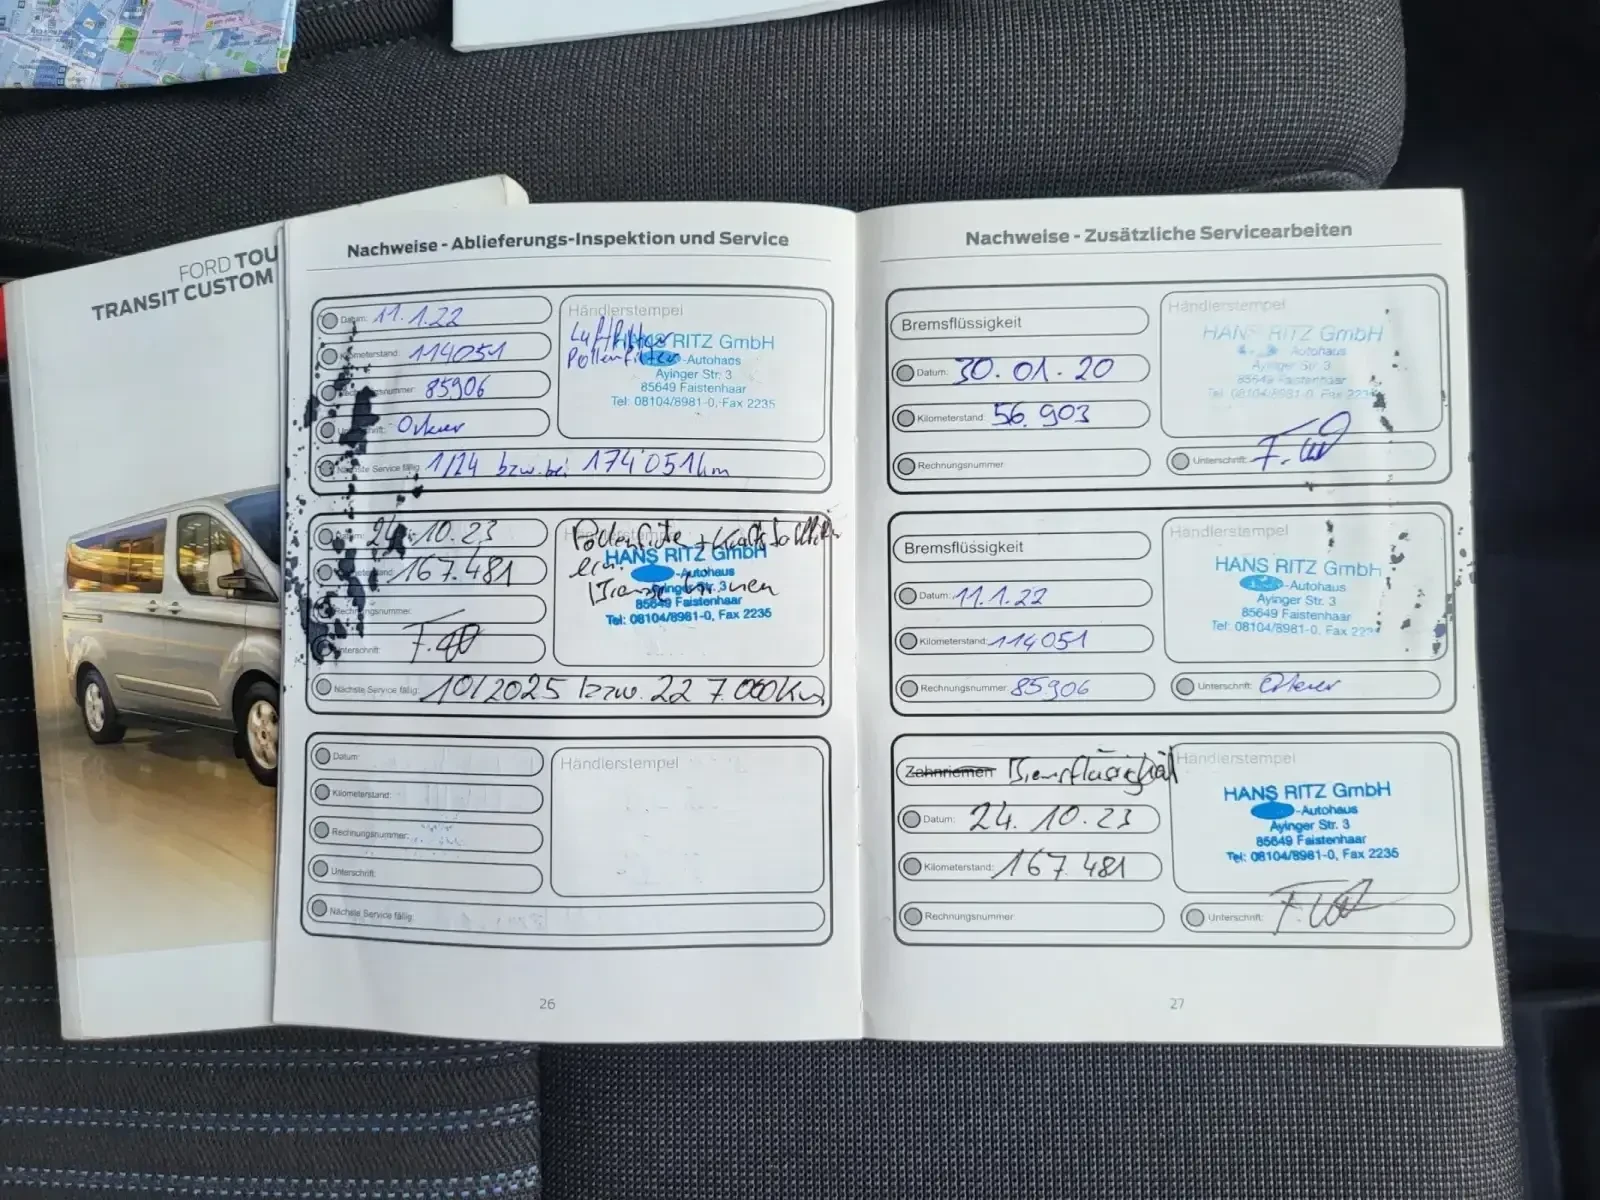 FORD TOU
TRANSIT CUSTOM
Nachweise - Ablieferungs-Inspektion und Service
Datum: 11.1.22
Kilometerstand: 114051
Rechnungsnummer: 85906
Unterschrift:
Nächste Service fällig: 1/24 bzw. bei 174'051km
Händlerstempel
Luftfilter
Pollenfilter
HANS RITZ GmbH
-Autohaus
Ayinger Str. 3
85649 Faistenhaar
Tel: 08104/8981-0, Fax 2235
Datum: 24.10.23
Kilometerstand: 167.481
Rechnungsnummer:
Unterschrift:
Nächste Service fällig: 10/2025 bzw. 227.000km
Händlerstempel
HANS RITZ GmbH
-Autohaus
Ayinger Str. 3
85649 Faistenhaar
Tel: 08104/8981-0, Fax 2235
Datum:
Kilometerstand:
Rechnungsnummer:
Unterschrift:
Nächste Service fällig:
Händlerstempel
26
Nachweise - Zusätzliche Servicearbeiten
Bremsflüssigkeit
Datum: 30.01.20
Kilometerstand: 56.903
Rechnungsnummer
Händlerstempel
HANS RITZ GmbH
Autohaus
Ayinger Str. 3
85649 Faistenhaar
Tel: 08104/8981-0, Fax 2235
Unterschrift:
Bremsflüssigkeit
Datum: 11.1.22
Kilometerstand: 114051
Rechnungsnummer: 85906
Händlerstempel
HANS RITZ GmbH
-Autohaus
Ayinger Str. 3
85649 Faistenhaar
Tel: 08104/8981-0, Fax 223
Unterschrift:
Zahnriemen Bremsflüssigkeit
Datum: 24.10.23
Kilometerstand: 167.481
Rechnungsnummer
Händlerstempel
HANS RITZ GmbH
-Autohaus
Ayinger Str. 3
85649 Faistenhaar
Tel: 08104/8981-0, Fax 2235
Unterschrift:
27